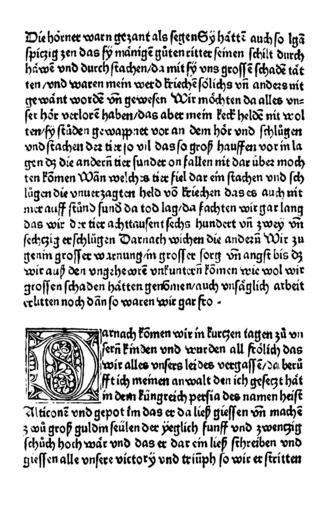 Die hörner warn gezant als segen Sy hätten auch so lꝛg
spiczig zen das sy mänigem gůten ritter seinen schilt durch
häwen vnd durch stachen/da mit sy vns grossen schadē tät
ten/vnd waren mein werd kriechē sölichs vñ anders nit
gewant wordē vñ gewesen Wir möchten da alles vn-
ser hör verloren haben/das aber mein keck heldē nit wol
ten/sy stůden gewappnet vor an dem hör vnd schlůgen
vnd stachen der tier so vil das so groß hauffen vor in la
gen dz die andern tier sunder on fallen nit dar über moch
ten kömen Wān welches tier fiel dar ein stachen vnd sch
lůgen die vnuerzagten held võ kriechen das es auch nit
mer auff stůnd sund da tod lag/da fachten wir gar lang
das wir der tier achttausent sechs hundert vñ zwey vñ
sechczig erschlůgen Darnach wichen die andern Wir zu
gen in grosser warnung/in grosser sorg vñ angst bis dz
wir auß den vngehewrē vnkuntern kömen wie wol wir
grossen schaden hätten genomen/auch vnsäglich arbeit
erlitten noch dān so waren wir gar fro ·
Darnach kömen wir in kurczen tagen zů vn
sern kinden vnd wurden all frölich das
wir alles vnsers leides vergassen/da berů
fft ich meinen anwalt den ich gesetzt hāt
in dem küngreich persia des namen heist
Alticonē vnd gepot im das er da ließ giessen vñ machē
zwů groß guldin seülen der yeglich funff vnd zwenczig
schůch hoch wär vnd das er dar ein ließ schreiben vnd
giessen alle vnsere victory vnd triūph so wir erstritten